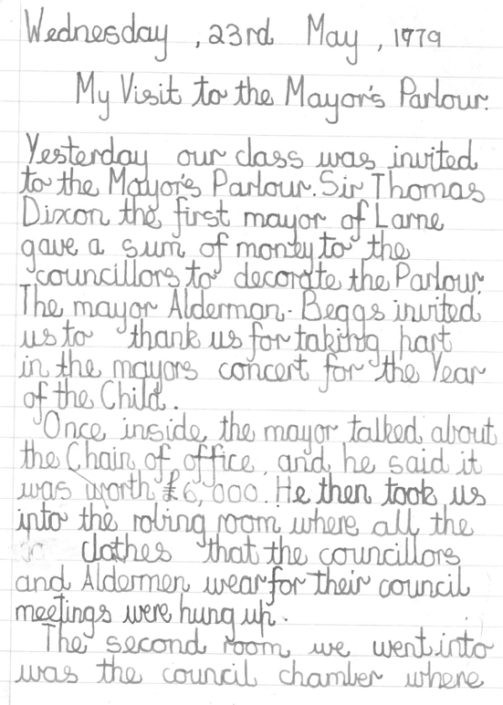 Wednesday , 23rd May , 1979
My Visit to the Mayor's Parlour.
Yesterday our class was invited
to the Mayor's Parlour. Sir Thomas
Dixon the first mayor of Larne
gave a sum of money to the
councillors to decorate the Parlour.
The mayor Alderman. Beggs invited
us to thank us for taking part
in the mayors concert for the Year
of the Child.
Once inside, the mayor talked about
the Chain of office, and he said it
was worth £6,000. He then took us
into the robing room where all the
clothes that the councillors
and Aldermen wear for their council
meetings were hung up.
The second room we went into
was the council chamber where